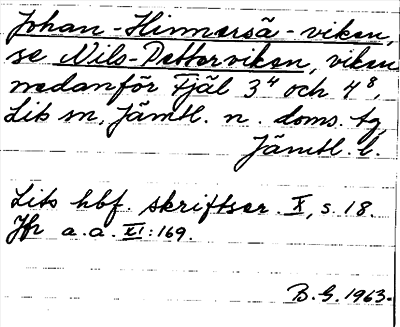 Johan-Hinnerså-viken,
se Nils-Petterviken, viken
nedanför Fjäl 3⁴ och 4⁸,
Lits sn, Jämtl. n. doms. tg,
Jämtl. l.
Lits hbf. skriftser. X, s. 18.
Jfr a.a. XI:169.
B.G. 1963.